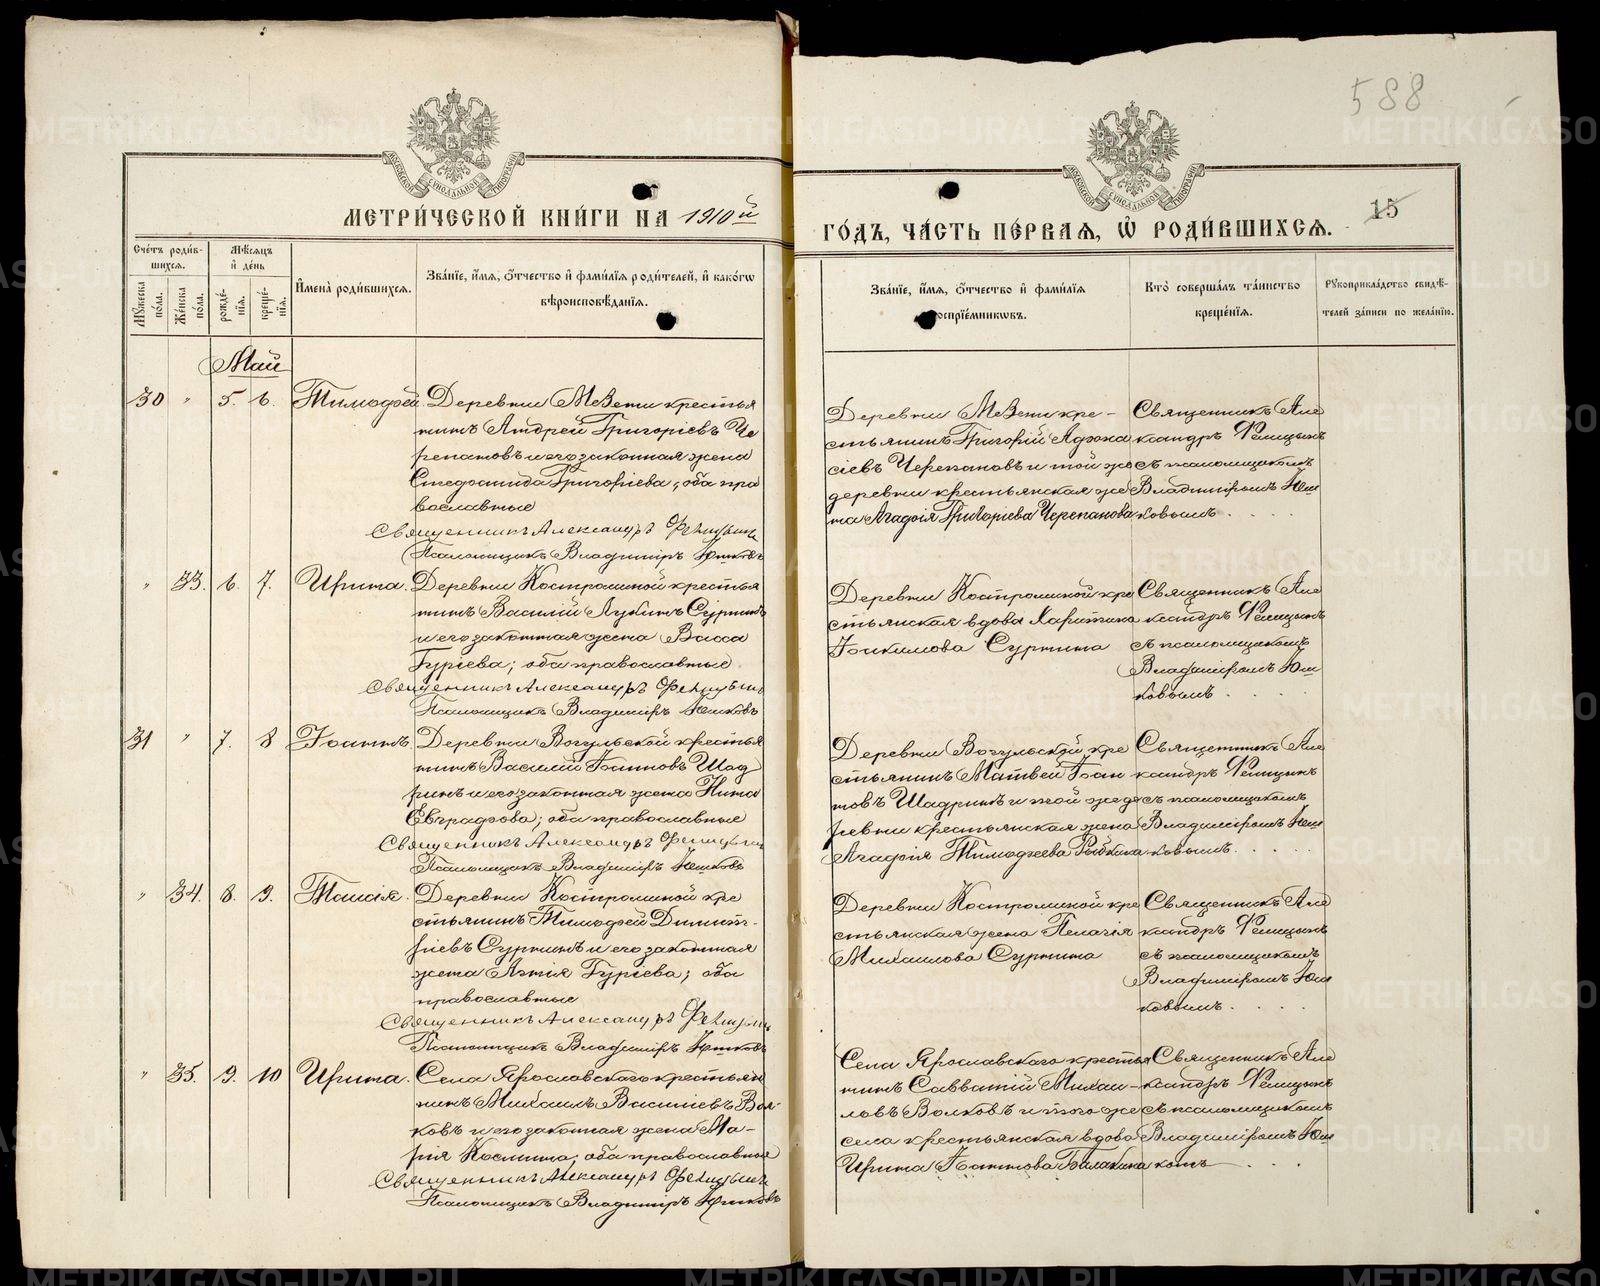 588
15
МЕТРИ́ЧЕСКОЙ КНИ́ГИ НА 1910й
ГО́ДЪ, ЧА́СТЬ ПЕ́РВАЯ, Ѡ҆ РОДИ́ВШИХСЯ.
Сче́тъ роди́в-
шихся.
Мꙋжеска по́ла.
Же́нска по́ла.
Мѣ́сяцъ
и҆ де́нь
рожде́-
нїя.
креще́-
нїя.
И҆мена̀ роди́вшихся.
Зва́нїе, и҆́мя, ѻ҆́тчество и҆ фами́лїя роди́телей, и҆ како́гѡ
вѣроисповѣ́данїя.
Зва́нїе, и҆́мя, ѻ҆́тчество и҆ фами́лїя
воспрїе́мникѡвъ.
Кто̀ соверша́лъ та́инство
креще́нїя.
Рꙋкоприкла́дство свидѣ́-
телей за́писи по жела́нїю.
Май
30 " 5. 6. Тимофей
Деревни Мѣзени крестья
нинъ Андрей Григоріевъ Че
репановъ и его законная жена
Григоріева; оба пра
вославные
Священникъ Александръ Фелицынъ
Псаломщикъ Владиміръ Юшковъ
Деревни Мѣзени кре-
стьянинъ Григорій Афона
сіевъ Черепановъ и той же
деревни крестьянская же
на Агафія Григоріева Черепанова
Священникъ Але
ксандръ Фелицынъ
съ псаломщикомъ
Владиміромъ Юш
ковымъ . . . .
" 33. 6. 7. Ирина.
Деревни Костромной крестья
нинъ Василій Лукинъ Суринъ
и его законная жена Васса
Гуріева; оба православные.
Священникъ Александръ Фелицынъ
Псаломщикъ Владиміръ Юшковъ
Деревни Костромной кре
стьянская вдова Харитина
Іоакимова Сурнина
Священникъ Але
ксандръ Фелицынъ
съ псаломщикомъ
Владиміромъ Юш
ковымъ . . . .
31 " 7. 8 Іоаннъ.
Деревни Вогульской крестья
нинъ Василій Іоанновъ Шад
ринъ и его законная жена Нина
Евграфова; оба православные
Священникъ Александръ Фелицынъ
Псаломщикъ Владиміръ Юшковъ
Деревни Вогульской кре
стьянинъ Матвей Іоан
новъ Шадринъ и той же де
ревни крестьянская жена
Агафія Тимофеева Рыбкина
Священникъ Але
ксандръ Фелицынъ
съ псаломщикомъ
Владиміромъ Юш
ковымъ. . . . .
" 34. 8. 9. Таисія.
Деревни Костромной кре
стьянинъ Тимофей Димит-
ріевъ Сурнинъ и его законная
жена Анна Гуріева; оба
православные
Священникъ Александръ Фелицынъ
Псаломщикъ Владиміръ Юшковъ
Деревни Костромной кре
стьянская жена Пелагія
Михаилова Сурнина
Священникъ Але
ксандръ Фелицынъ
съ псаломщикомъ
Владиміромъ Юш
ковымъ. . . . .
" 35. 9. 10 Ирина.
Села Ярославского крестьян
нинъ Михаилъ Василіевъ Вол-
ковъ и его законная жена Ма-
рія Космина; оба православные
Священникъ Александръ Фелицынъ
Псаломщикъ Владиміръ Юшковъ
Села Ярославского крестья
нинъ Савватій Михаи-
ловъ Волковъ и того же
села крестьянская вдова
Ирина Іоаннова Балакина
Священникъ Але
ксандръ Фелицынъ
съ псаломщикомъ
Владиміромъ Юш
комъ . . .
METRIKI.GASO-URAL.RU